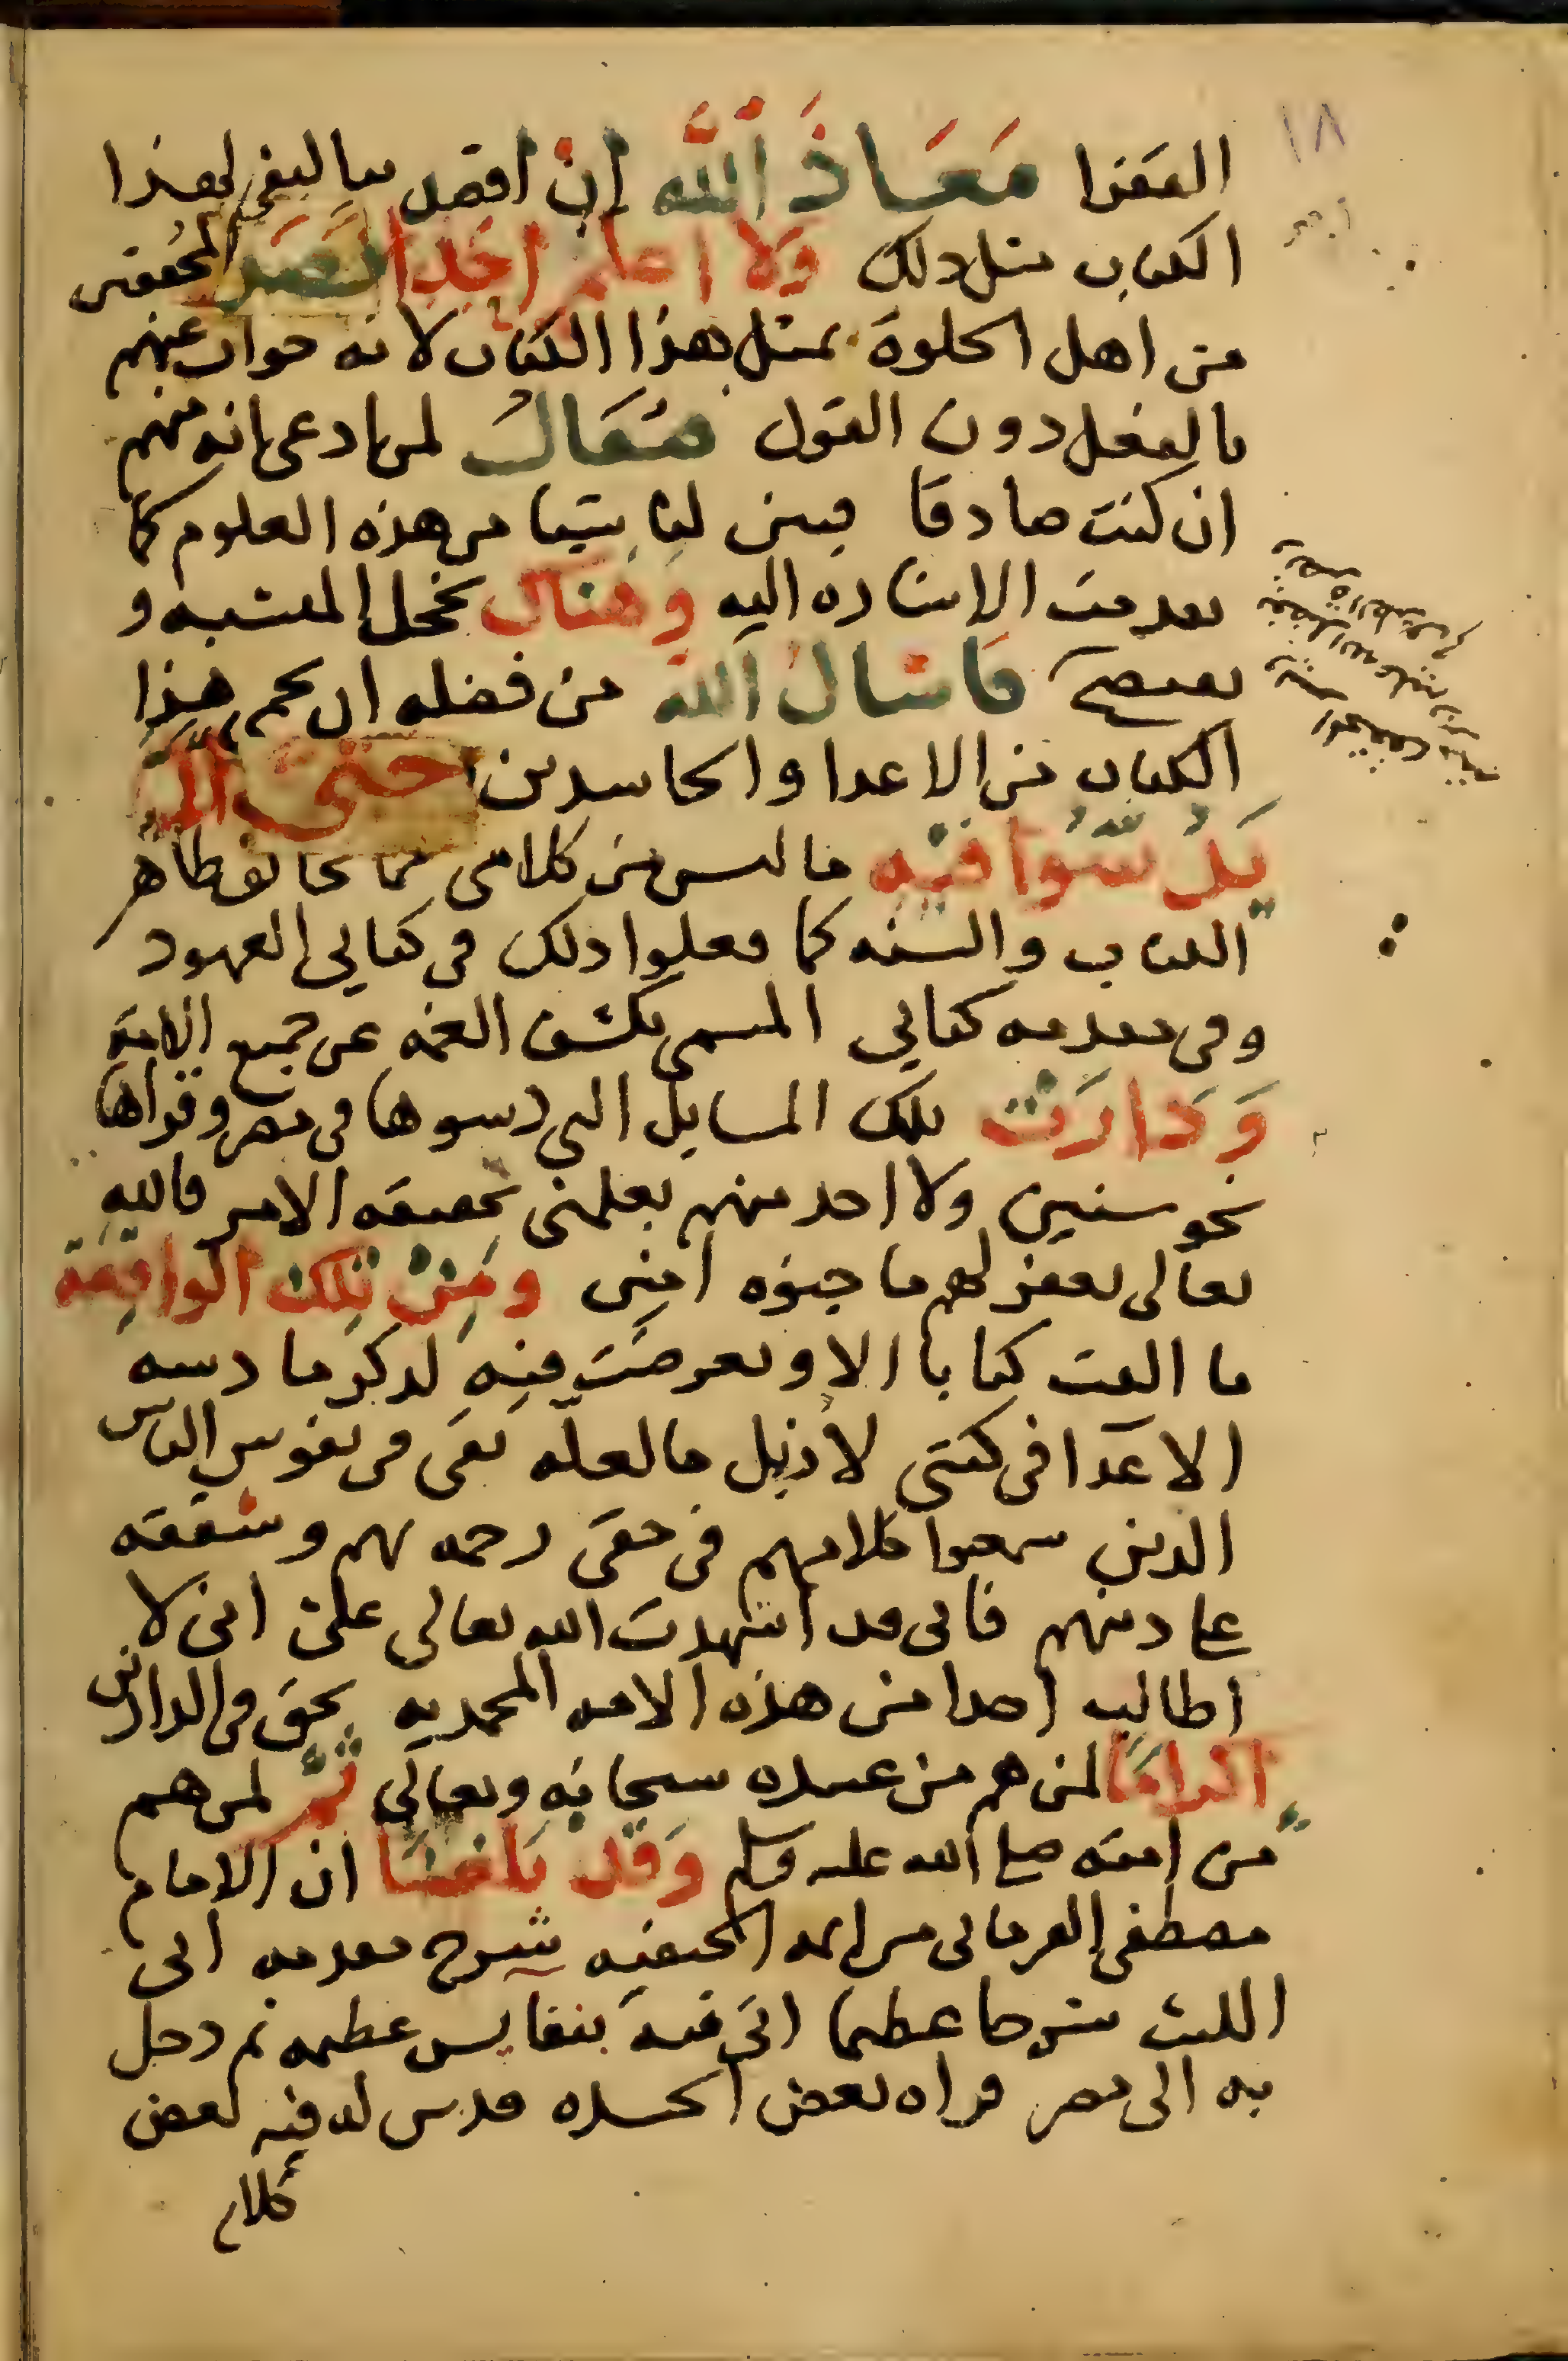 ١٨
الفقرا مَعَاذَ اللَّه ان اقصد بتاليفي لهذا
الكتاب مثل ذلك وَلا اعلم احَدا نَصَر المحُققين
من اهل الخلوة بمثل هذا الكتاب لانه جواب عنهم
بالفعل دون القول فيُقالُ لمن ادعى انه منهم
ان كنت صادقا فبين لنا شيا من هذه العلوم كما
تقدمت الاشارة اليه وَهُنَاك يخجل المشبه و
يفتضح فاسْالُ اللهَ من فضله ان يحمى هذا
الكتاب من الاعدا والحاسدين حتى لا
يَدُسّوا فيْهِ ما ليس من كلامى مما يخالف ظاهر
الكتاب والسنه كما فعلوا ذلك في كتابي العهود
وفي مقدمه كتابي المسمى بكشف الغمه عن جميع الامة
وَدارَتْ تلك المسايل التي دسوها في مصر وقراها
نحو سنين ولا احد منهم يعلمنى بحقيقه الامر فالله
تعالى يغفر لهم ما جنوه امين ومَنْ تِلك الواقِعَة
ما الفت كتابا الا وتعرضت فيه لذكر ما دسه
الاعدا في كتبي لازيل ما لعله بقى في نفوس الناس
الذين سمعوا كلامهم في حقى رحمه بهم وشفقه
على دينهم فانى قد اشهدت الله تعالى علىّ انى لا
اطالب احدا من هذه الامه المحمديه بحق في الدارين
اكرامًا لمن هم من عبيده سبحانه وتعالى ثُمَّ لمن هم
من امته صلى الله عليه وسلم وَقَد بَلغنَا ان الامام
مصطفى القرمانى من ايمه الحنفيه شرح مقدمه ابى
الليث شرحا عظيما اتى فيه بنفايس عظيمه ثم دخل
به الى مصر فراه بعض الحسده فدس له فيه بعض
كلام